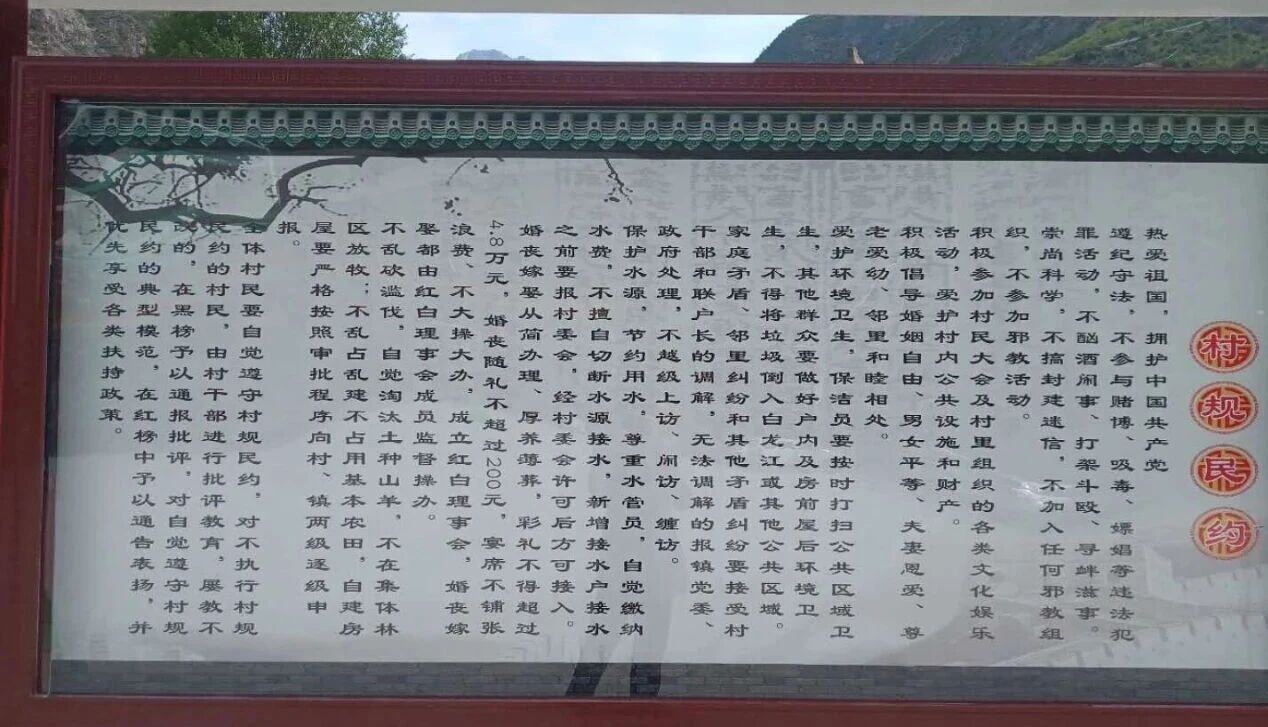 村规民约
热爱祖国，拥护中国共产党
遵纪守法，不参与赌博、吸毒、嫖娼等违法犯
罪活动，不酗酒闹事、打架斗殴、寻衅滋事。
崇尚科学，不搞封建迷信，不加入任何邪教组
织，不参加邪教活动。
积极参加村民大会及村里组织的各类文化娱乐
活动，爱护村内公共设施和财产。
积极倡导婚姻自由、男女平等、夫妻恩爱、尊
老爱幼、邻里和睦相处。
爱护环境卫生，保洁员要按时打扫公共区域卫
生，其他群众要做好户内及房前屋后环境卫
生，不得将垃圾倒入白龙江或其他公共区域。
家庭矛盾、邻里纠纷和其他矛盾纠纷要接受村
干部和联户长的调解，无法调解的报镇党委、
政府处理，不越级上访、闹访、缠访。
保护水源，节约用水，尊重水管员，自觉缴纳
水费，不擅自切断水源接水，新增接水户接水
之前要报村委会，经村委会许可后方可接入。
婚丧嫁娶从简办理、厚养薄葬，彩礼不得超过
4.8万元，婚丧随礼不超过200元，宴席不铺张
浪费、不大操大办，成立红白理事会，婚丧嫁
娶都由红白理事会成员监督操办。
不乱砍滥伐，自觉淘汰土种山羊，不在集体林
区放牧；不乱占乱建不占用基本农田，自建房
屋要严格按照审批程序向村、镇两级逐级申
报。
全体村民要自觉遵守村规民约，对不执行村规
民约的村民，由村干部进行批评教育，屡教不
改的，在黑榜予以通报批评，对自觉遵守村规
民约的典型模范，在红榜中予以通告表扬，并
优先享受各类扶持政策。